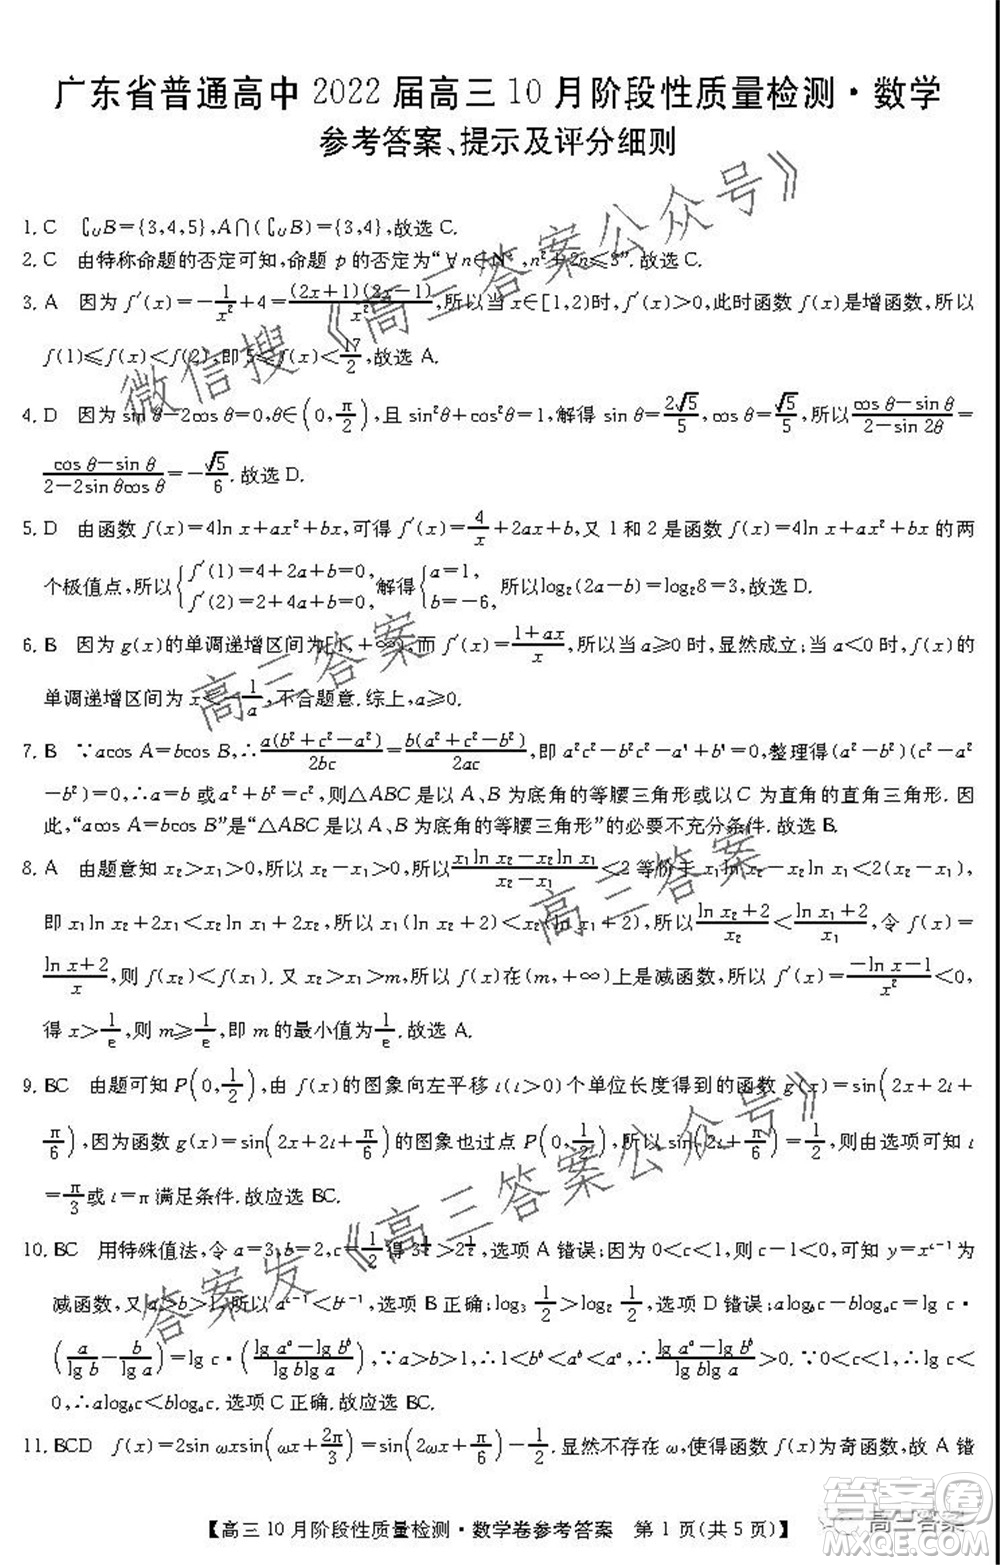 广东省普通高中 2022 届高三 10 月阶段性质量检测·数学
参考答案、提示及评分细则
1. C ∁UB={3,4,5},A∩(∁UB)={3,4},故选 C.
2. C 由特称命题的否定可知,命题 p 的否定为“∀n∈N*,n²+2n≤3”.故选 C.
3. A 因为 f′(x)=-1/x²+4=(2x+1)(2x-1)/x²,所以当 x∈[1,2)时,f′(x)>0,此时函数 f(x)是增函数,所以
f(1)≤f(x)<f(2),即 5≤f(x)<17/2,故选 A.
4. D 因为 sin θ-2cos θ=0,θ∈(0,π/2),且 sin²θ+cos²θ=1,解得 sin θ=2√5/5,cos θ=√5/5,所以(cos θ-sin θ)/(2-sin 2θ)=
(cos θ-sin θ)/(2-2sin θcos θ)=-√5/6.故选 D.
5. D 由函数 f(x)=4ln x+ax²+bx,可得 f′(x)=4/x+2ax+b,又 1 和 2 是函数 f(x)=4ln x+ax²+bx 的两
个极值点,所以{f′(1)=4+2a+b=0, f′(2)=2+4a+b=0,解得{a=1, b=-6,所以log₂(2a-b)=log₂8=3,故选 D.
6. B 因为 g(x)的单调递增区间为[1,+∞),而 f′(x)=(1+ax)/x,所以当 a≥0 时,显然成立;当 a<0 时,f(x)的
单调递增区间为 x<-1/a,不合题意.综上,a≥0.
7. B ∵acos A=bcos B,∴a(b²+c²-a²)/2bc=b(a²+c²-b²)/2ac,即 a²c²-b²c²-a⁴+b⁴=0,整理得(a²-b²)(c²-a²
-b²)=0,∴a=b 或a²+b²=c²,则△ABC 是以 A、B 为底角的等腰三角形或以 C 为直角的直角三角形.因
此,“acos A=bcos B”是“△ABC 是以 A、B 为底角的等腰三角形”的必要不充分条件.故选 B.
8. A 由题意知 x₂>x₁>0,所以 x₂-x₁>0,所以(x₁ln x₂-x₂ln x₁)/(x₂-x₁)<2 等价于 x₁ln x₂-x₂ln x₁<2(x₂-x₁),
即 x₁ln x₂+2x₁<x₂ln x₁+2x₂,所以 x₁(ln x₂+2)<x₂(ln x₁+2),所以(ln x₂+2)/x₂<(ln x₁+2)/x₁,令 f(x)=
(ln x+2)/x,则 f(x₂)<f(x₁).又 x₂>x₁>m,所以 f(x)在(m,+∞)上是减函数,所以 f′(x)=(-ln x-1)/x²<0,
得 x>1/e,则 m≥1/e,即 m 的最小值为1/e.故选 A.
9. BC 由题可知 P(0,1/2),由 f(x)的图象向左平移 t(t>0)个单位长度得到的函数 g(x)=sin(2x+2t+
π/6),因为函数 g(x)=sin(2x+2t+π/6)的图象也过点 P(0,1/2),所以 sin(2t+π/6)=1/2,则由选项可知 t
=π/3或 t=π 满足条件.故应选 BC.
10. BC 用特殊值法,令 a=3,b=2,c=1/2得 3^(1/2)>2^(1/2),选项 A 错误;因为 0<c<1,则 c-1<0,可知 y=x^(c-1)为
减函数,又 a>b>1,所以 a^(c-1)<b^(c-1),选项 B 正确;log₃ 1/2>log₂ 1/2,选项 D 错误;alog_b c-blog_a c=lg c·
(a/lg b-b/lg a)=lg c·((lg a^a-lg b^b)/(lg blg a)),∵a>b>1,∴1<b^b<a^b<a^a,∴(lg a^a-lg b^b)/(lg blg a)>0,∵0<c<1,∴lg c<
0,∴alog_b c<blog_a c,选项 C 正确.故选BC.
11. BCD f(x)=2sin ωxsin(ωx+2π/3)=sin(2ωx+π/6)-1/2.显然不存在 ω,使得函数 f(x)为奇函数,故 A 错
【高三 10 月阶段性质量检测·数学卷参考答案 第 1 页(共 5 页)】
微信搜《高三答案公众号》
高三答案
高三答案
答案发《高三答案公众号》
高三答案
答案圈
MXQE.COM